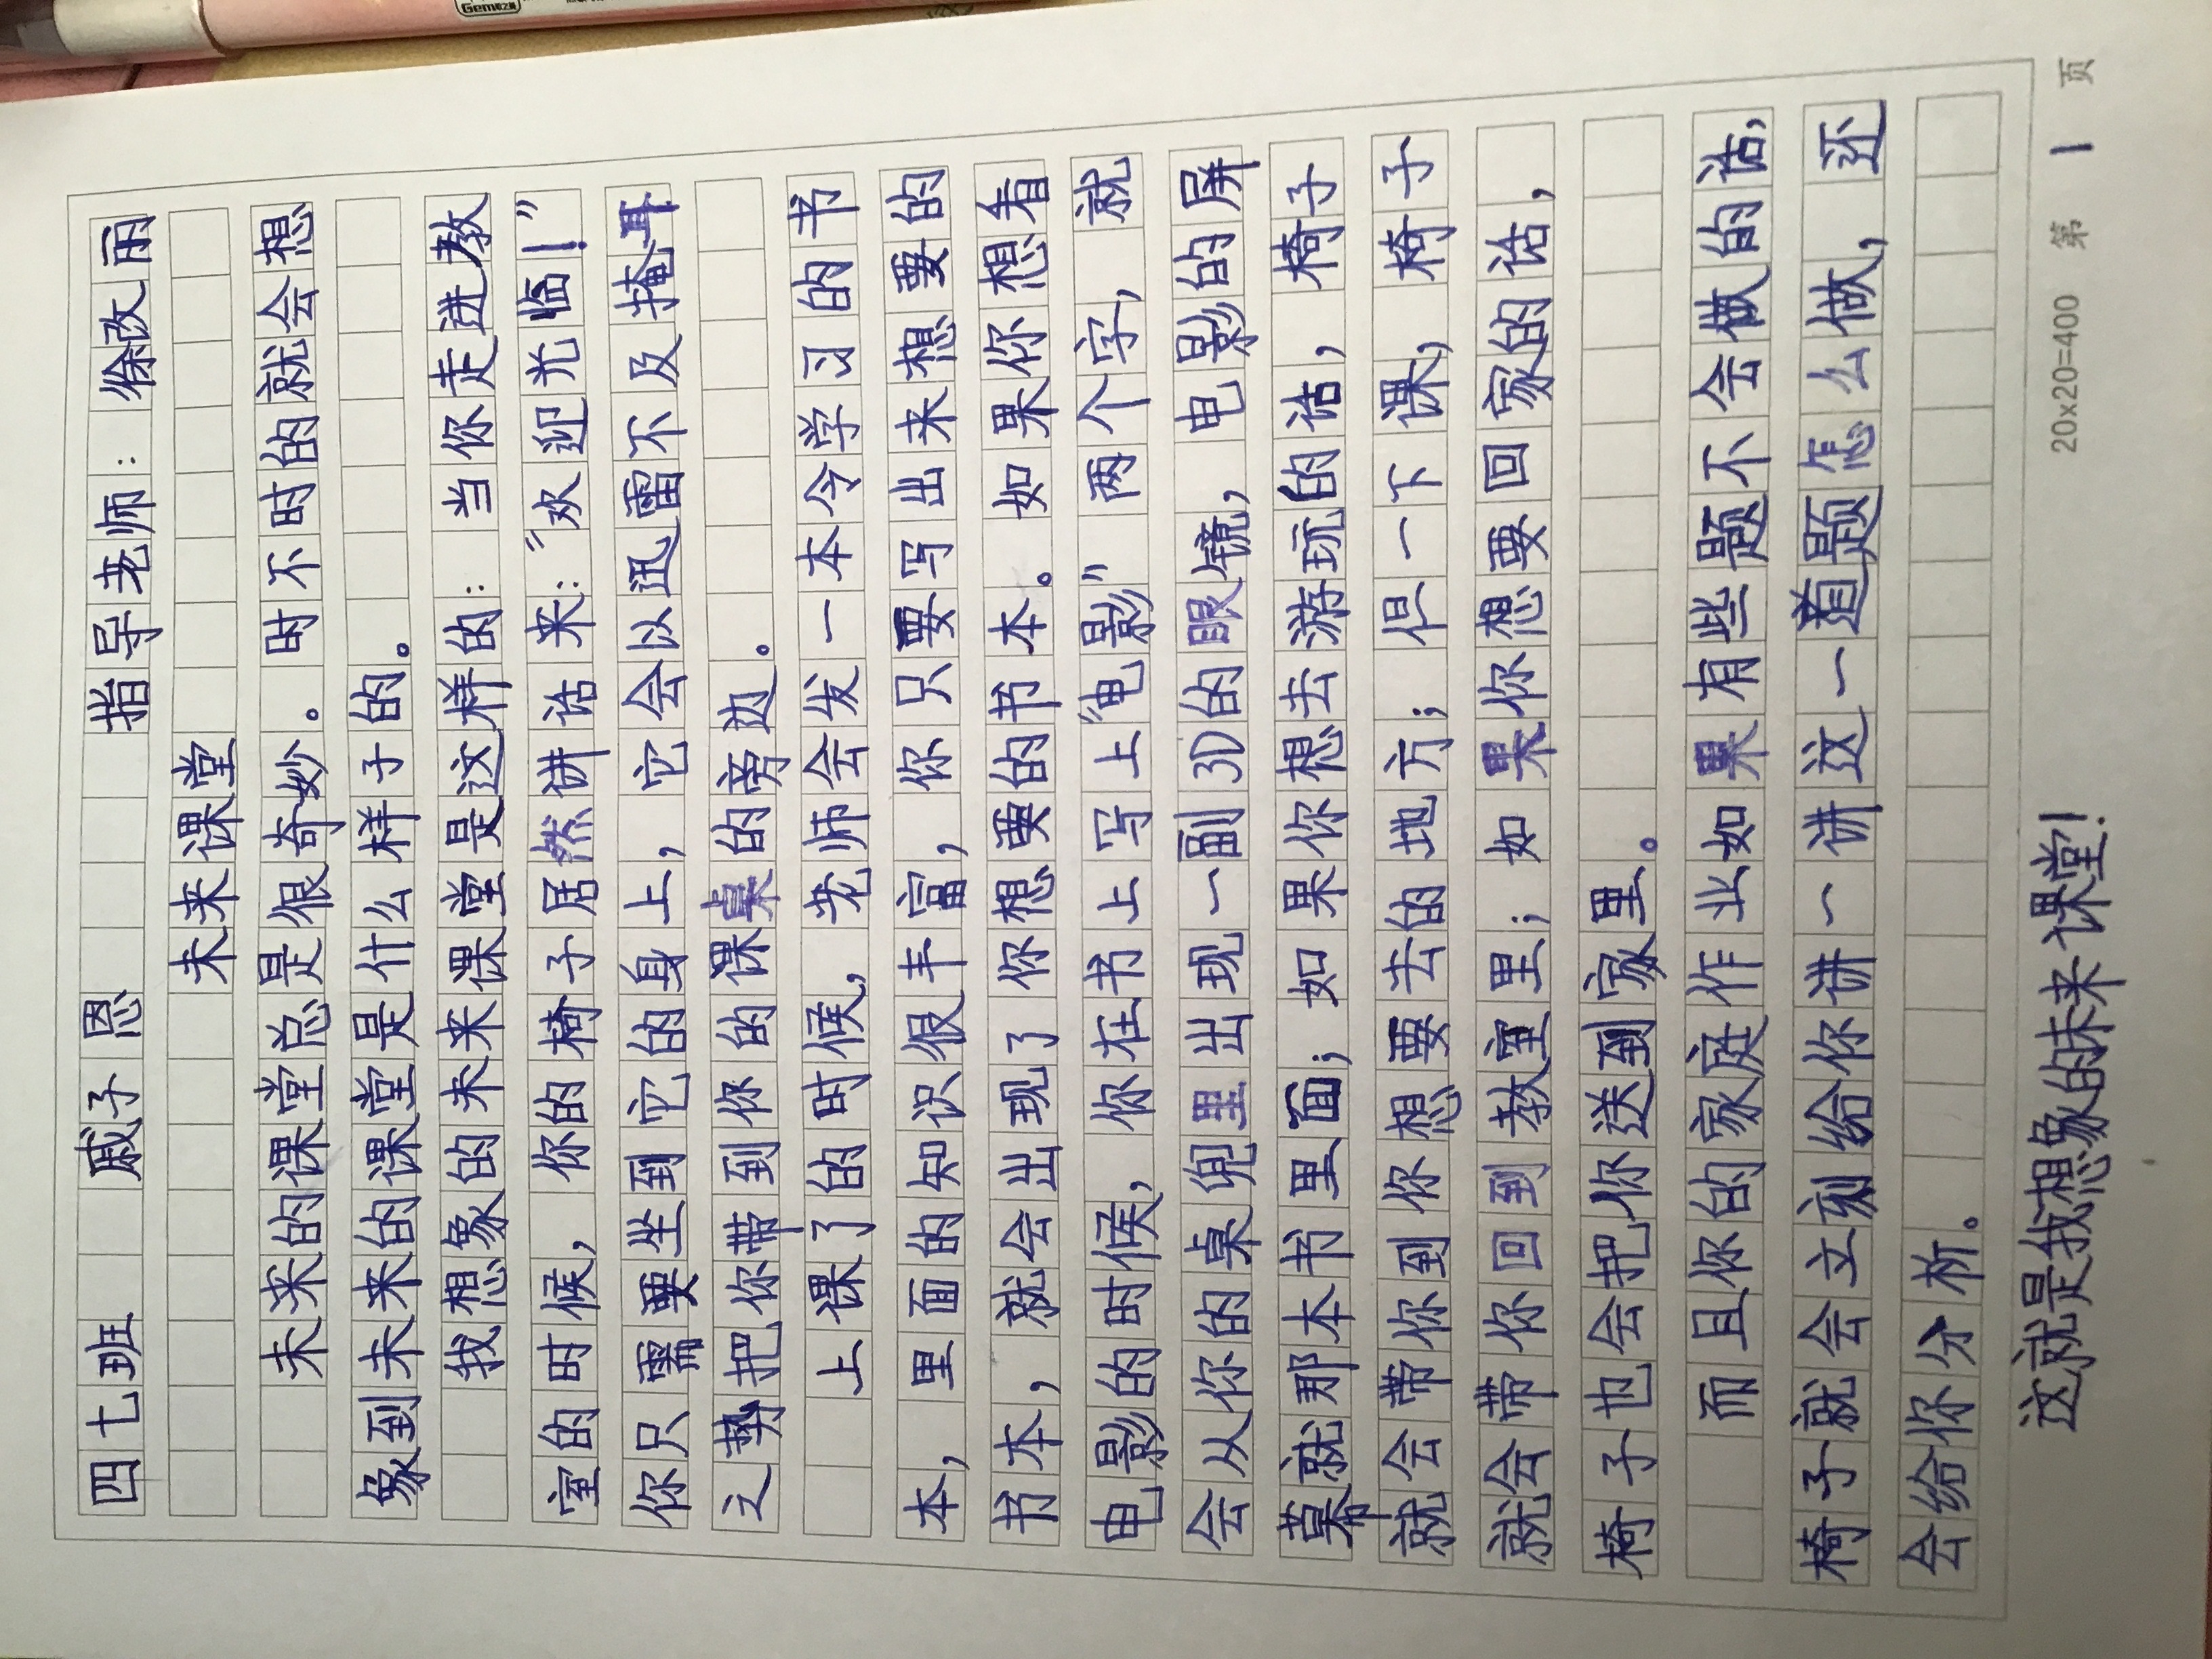 四七班 戚子恩 指导老师：徐改丽
未来课堂
未来的课堂总是很奇妙。时不时的就会想
象到未来的课堂是什么样子的。
我想象的未来课堂是这样的：当你走进教
室的时候，你的椅子居然讲话来：“欢迎光临！”
你只需要坐到它的身上，它会以迅雷不及掩耳
之势把你带到你的课桌的旁边。
上课了的时候，老师会发一本令学习的书
本，里面的知识很丰富，你只要写出来想要的
书本，就会出现了你想要的书本。如果你想看
电影的时候，你在书上写上“电影”两个字，就
会从你的桌兜里出现一副3D的眼镜，电影的屏
幕就那本书里面；如果你想去游玩的话，椅子
就会带你到你想要去的地方；但一下课，椅子
就会带你回到教室里；如果你想要回家的话，
椅子也会把你送到家里。
而且你的家庭作业如果有些题不会做的话，
椅子就会立刻给你讲一讲这一道题怎么做，还
会给你分析。
这就是我想象的未来课堂！
20x20=400 第1页